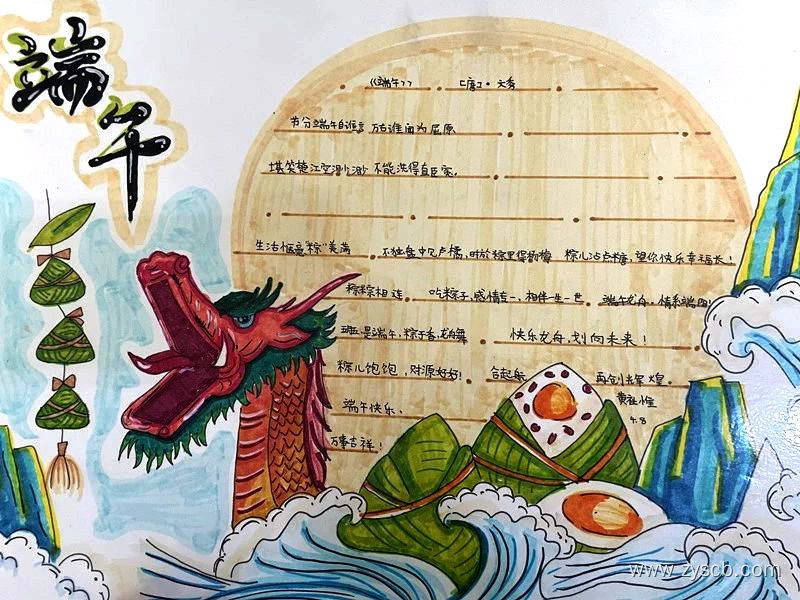 端午
《端午》 [唐]·文秀
节分端午自谁言 万古谁面为屈原
堪笑楚江空渺渺 不能洗得直臣冤.
生活惬意"粽"美满 不独盘中见卢橘,时於粽里得杨梅 粽儿沾点糖,望你快乐幸福长!
粽粽相连 吃粽子,感情专一,相伴一生一世 端午龙舟,情系端阳!
五是端午,粽子香,龙舟舞 快乐龙舟,划向未来!
粽儿饱饱,财源好好! 合起航 再创出辉煌.
黄 惟
端午快乐.
4.8
万事吉祥!
www.zyscb.com